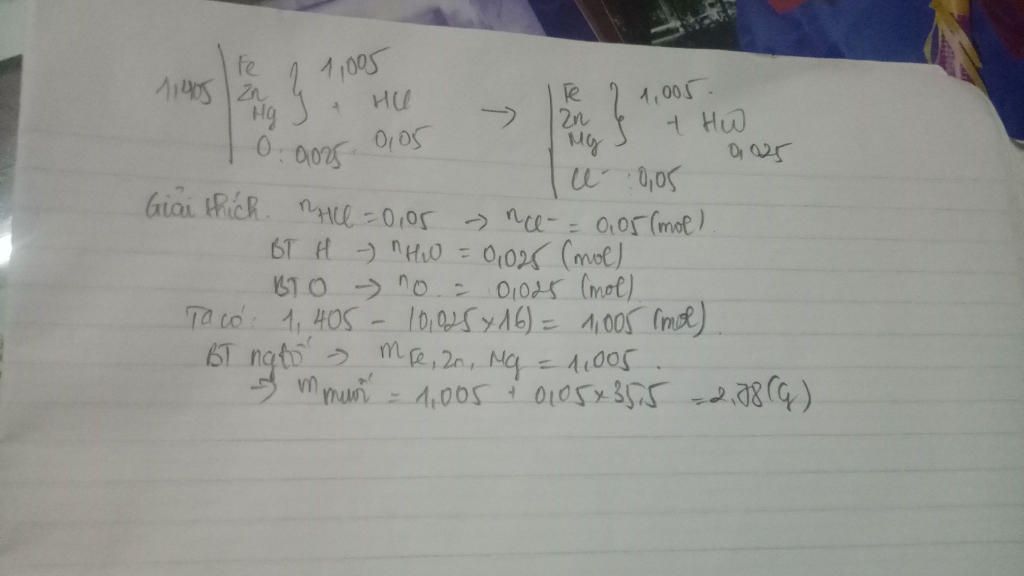 1,405 | Fe Zn Mg } 1,005 + HCl → | Fe Zn Mg } 1,005. + H2O
O : 0,025 0,05 0,025
Cl⁻ : 0,05
Giải thích. nHCl = 0,05 → nCl⁻ = 0,05 (mol).
BT H → nH2O = 0,025 (mol)
BT O → nO = 0,025 (mol)
Ta có: 1,405 - (0,025×16) = 1,005 (mol).
BT ngtố → mFe, Zn, Mg = 1,005.
→ mmuối = 1,005 + 0,05×35,5 = 2,78 (g)